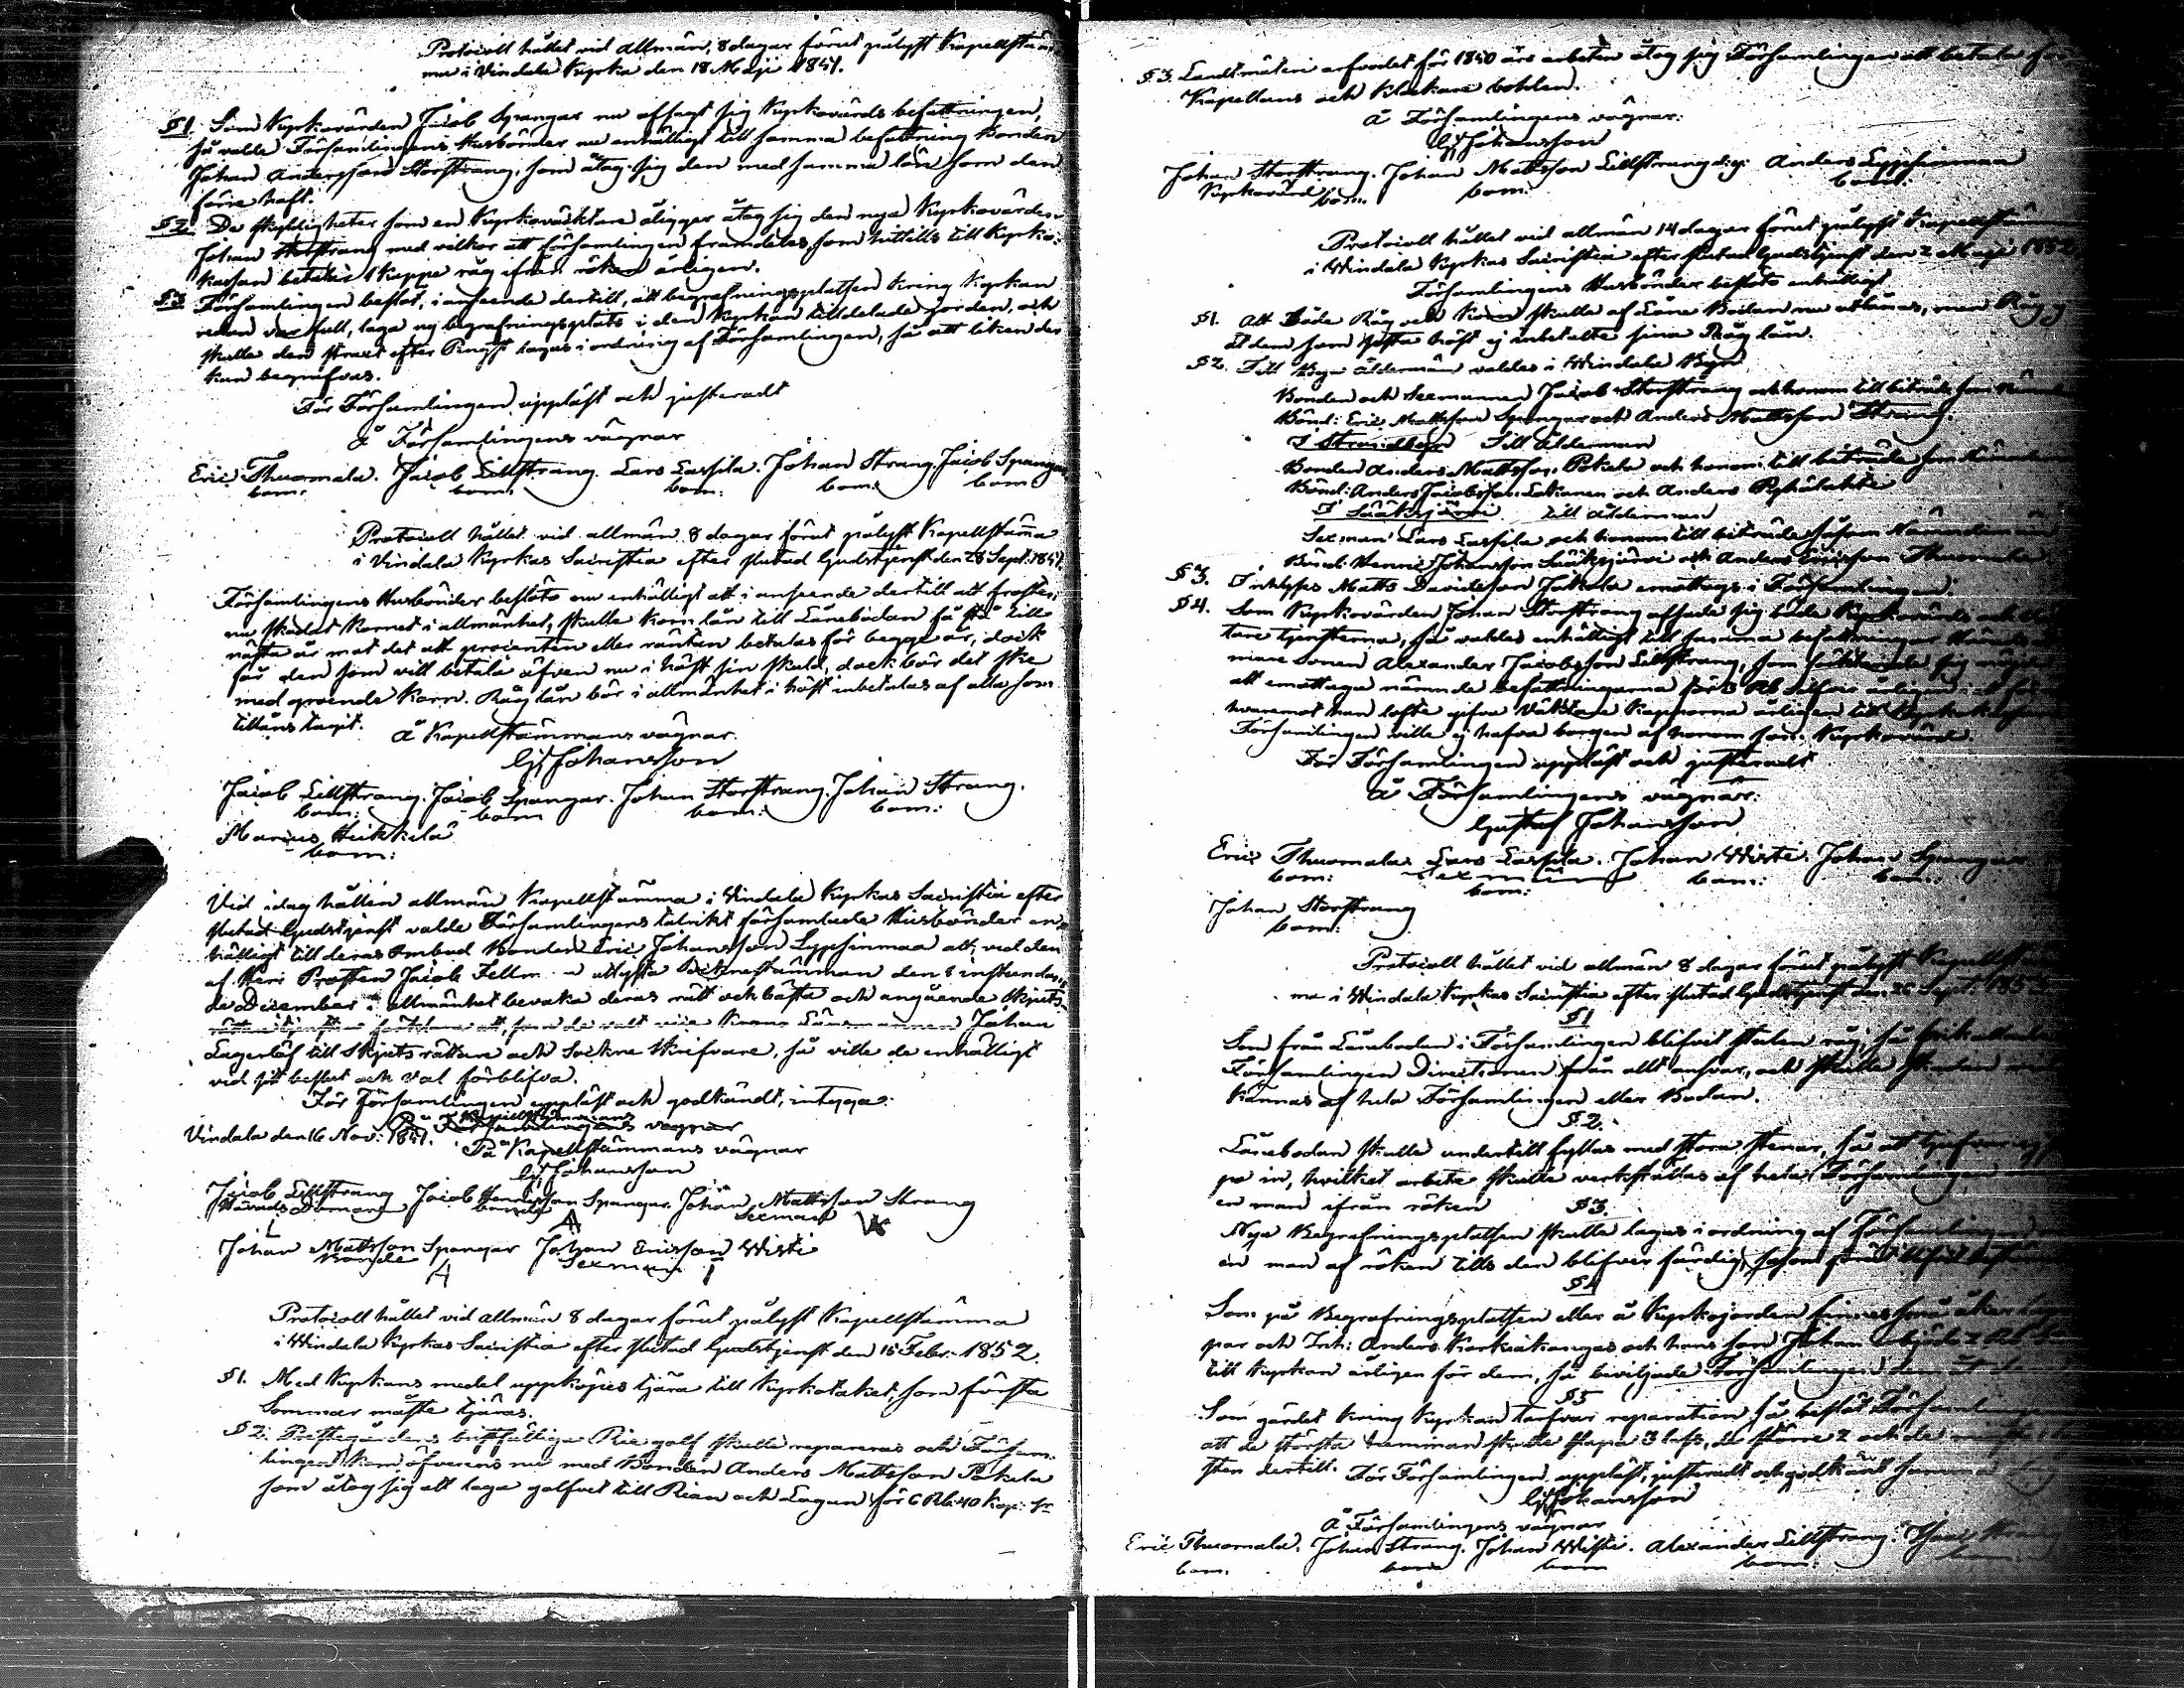 Protocoll hållet vid allmän, 8 dagar förut pålyst Kapellstäm-
ma i Vindala Kyrka den 18 Maji 1851.
§1. Som Kyrkovärden Jacob Spangar nu afsagt sig Kyrkovärds befattningen,
så valde Församlingens Husbönder nu enhälligt till samma befattning Bonden
Johan Andersson Storstrang, som åtog sig den med samma lön som den
förre haft.
§2. De skyldigheter som en Kyrkoväktare åligger åtog sig den nya Kyrkovärden
Johan Storstrang med vilkor att församlingen framdeles som hittills till Kyrko-
kassan betalar 1 Kappe råg ifrån röken årligen.
§3. Församlingen beslöt, i anseende dertill, att begrafningsplatsen kring Kyrkan
redan var full, laga ny begrafningsplats i den Kyrkan tilldelade jorden, och
skulle den straxt efter Pingst tagas i ordning af Församlingen, så att liken der
kan begrafvas.
För Församlingen uppläst och justeradt
å Församlingens vägnar
Eric Thuomala. Jacob Lillstrang. Lars Lassila. Johan Strang. Jacob Spangar
bom. bom. bom. bom. bom
Protocoll hållet vid allmän 8 dagar förut pålyst Kapellstämma
i Vindala Kyrkas Sacristia efter slutad Gudstjenst den 28 Sept. 1851.
Församlingens Husbönder beslöto nu enhälligt att i anseende dertill att frosten
nu skadat Kornet i allmänhet, skulle Korn lån till Lånebodan få stå till
nästa år mot det att procenten eller räntan betalas för begge år, dock
får den som vill betala äfven nu i höst sin skuld, dock bör det ske
med groende Korn. Råg lån bör i allmänhet i höst inbetalas af alla som
tilllåns tagit.
å Kapellstämmans vägnar.
Gst Johansson
Jacob Lillstrang. Jacob Spangar. Johan Storstrang. Johan Strang.
bom: bom bom: bom:
Marcus Heikkilä
bom:
Vid idag hållen allmän Kapellstämma i Vindala Kyrkas Sacristia efter
slutad Gudstjenst valde Församlingens talrikt församlade Husbönder en-
hälligt till deras Ombud Bonden Eric Johansson Lypsinmaa att, vid den
af Herr Prosten Jacob Fellm utlysta Socknestämman den 8 instundan-
de December i allmänhet bevaka deras rätt och bästa och angående Skjuts-
att, som de valt Krono Länsmannen Johan
Lagerlöf till Skjuts rättare och Sockne Skrifvare, så ville de enhälligt
vid sitt beslut och val förblifva.
För Församlingen uppläst och godkändt, intyga:
Kapellstämmans
Vindala den 16 Nov: 1851. På Församlingens vägnar
På Kapellstämmans vägnar
Gst Johansson
Jacob Lillstrang Jacob Henriksson Spangar. Johan Mattsson Strang
bonde Sexman
Johan Mattsson Spangar Johan Ericsson Wirti
Bonde Sexman
Protocoll hållet vid allmän 8 dagar förut pålyst Kapellstämma
i Windala Kyrkas Sacristia efter slutad Gudstjenst den 15 Febr. 1852.
§1. Med Kyrkans medel uppköpes tjära till Kyrkotaket, som första
Sommar måste tjäras.
§2. Prestegårdens bristfälliga Rie golf skulle repareras och Försam-
lingen kom öfverens nu med Bonden Anders Mattsson Pokela
som åtog sig att laga golfvet till Rian och Logan för 6 Rub. 40 Kop: Sr
§3. Landtmäteri arfvodet för 1850 års arbeten åtog sig Församlingen att betala för
Kapellans och Klockare bohlen.
å Församlingens vägnar:
Gst Johansson
Johan Storstrang. Johan Mattsson Lillstrang Anders Lypsinmaa
Kyrkovärd bom. bom: bom:
Protocoll hållet vid allmän 14 dagar förut pålyst Kapellstäm
i Windala Kyrkas Sacristia efter slutad Gudstjenst den 2 Maji 1852
Församlingens Husbönder beslöto enhälligt
§1. Att Både Råg och Korn skulle af Låne Bodan nu utlånas, men Råg ej
åt dem som sista höst ej inbetalte sina Råg lån.
§2. Till Bya ålderman valdes i Windala Byn
Bonden och Sexmannen Jacob Storstrang och honom till biträde som Nämnde
Bönd: Eric Mattsson Spangar och Anders Mattsson Strang.
I Strandbyn Till ålderman
Bonden Anders Mattsson Pokela och honom till biträde som Nämndemän
Bönd: Anders Jacobsson Lakanen och Anders Pyhälahti
I Sääksjärvi till ålderman
Sexman Lars Lassila och honom till biträde såsom Nämndemän
Bönd. Henric Johansson Sääksjärvi och Anders Ericsson Thuomala
§3. Inhyses Matts Davidsson Jokela emottogs i Församlingen.
§4. Som Kyrkovärden Johan Storstrang afsade sig både Kyrkovärds och
tare tjensterna, så valdes enhälligt till samma befattningar
mans sonen Alexander Jacobsson Lillstrang, som
att emottaga nämnde befattningarna Rub. Silfver årligen
hvaremot han lofte gifva Väktare Kapporna årligen till Kyrko kassan
Församlingen ville ej hafva borgen af honom som Kyrkovärd.
För Församlingen uppläst och justeradt
å Församlingens vägnar:
Gustaf Johansson
Eric Thuomala. Lars Lassila. Johan Wirti. Johan Spangar.
bom: Sexman bom: bom: bom:
Johan Storstrang
bom:
Protocoll hållet vid allmän 8 dagar förut pålyst Kapellstäm
ma i Windala Kyrkas Sacristia efter slutad Gudstjenst den 26 Sept. 1852
§1
Som från Lånebodan i Församlingen blifvit stulen råg, så frikallade
Församlingen Directionen från allt ansvar, och skulle skadan
kännas af hela Församlingen eller Bodan.
§2.
Lånebodan skulle undertill fyllas med stora stenar, så at tjufvar ej
po in, hvilket arbete skulle verkställas af hela Församlingen
en man ifrån röken
§3.
Nya Begrafningsplatsen skulle lagas i ordning af Församlingen
en man af röken tills den blifver färdig, såsom förut blifvit
§4
Som på Begrafningsplatsen eller å Kyrkojorden finnes små åker
par och Inh: Anders Karkiakangas och hans son Johan bjuda 2 Rub
till Kyrkan årligen för dem, så beviljade Församlingen dem
§5
Som gärdet kring Kyrkan tarfvar reparation så beslöt Församlingen
att de största hemman skulle skapa 3 lass, de större 2 och de minsta
sten dertill. För Församlingen uppläst, justeradt och godkänt
Gst Johansson
å Församlingens vägnar
Eric Thuomala. Johan Strang. Johan Wirti. Alexander Lillstrang.
bom. bom bom bom: